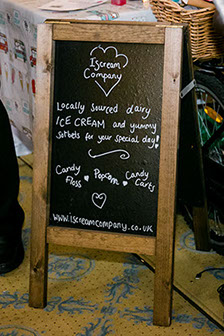 Iscream
Company
Locally sourced dairy
ICE CREAM and yummy
sorbets for your special day!
Candy Floss
Popcorn
Candy Carts
www.iscreamcompany.co.uk